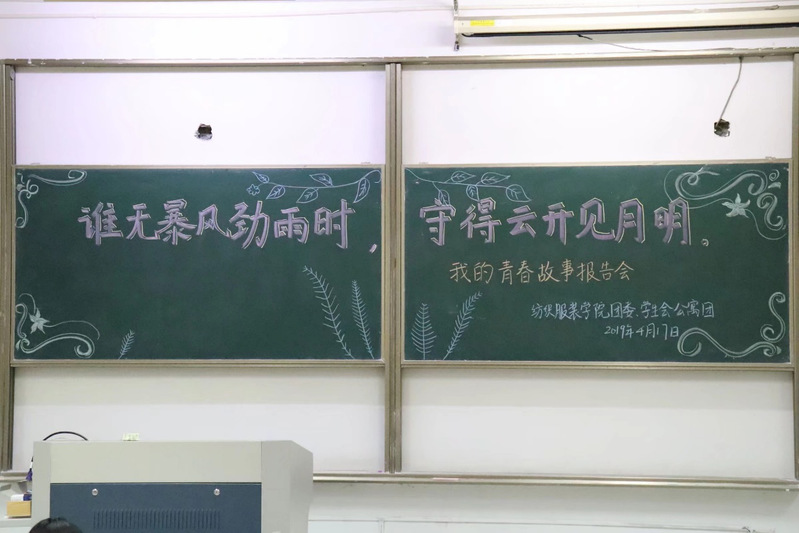 谁无暴风劲雨时，守得云开见月明。
我的青春故事报告会
纺织服装学院团委、学生会公寓团
2019年4月17日